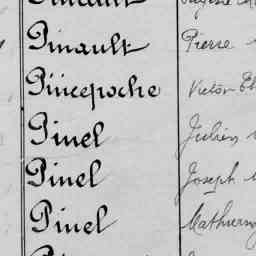 Pinault Pierre
Pincepoche Victor
Pinel Julien
Pinel Joseph
Pinel Mathurin